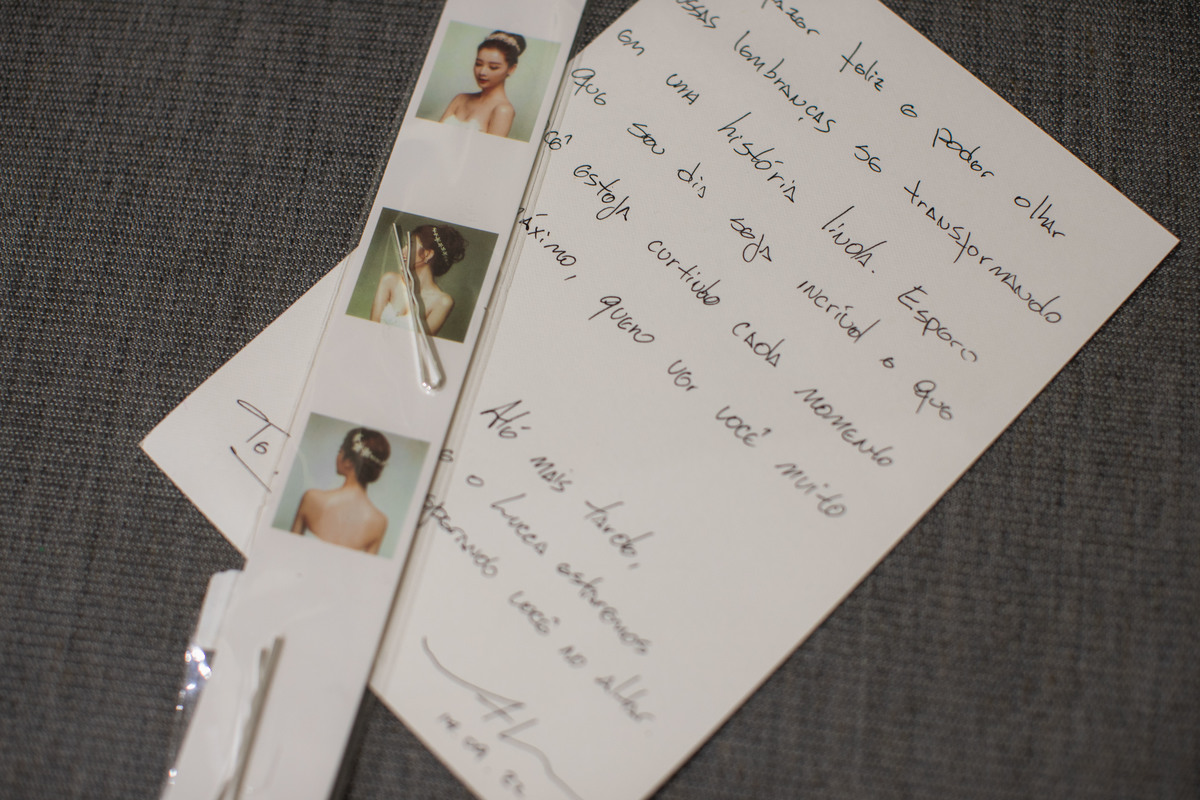 fazer feliz e poder olhar
ossas lembranças se transformando
em uma história linda. Espero
que seu dia seja incrível e que
cê esteja curtindo cada momento
áximo, quero ver você muito
Te
Até mais tarde,
e o Lucca estaremos
sperando você no altar.